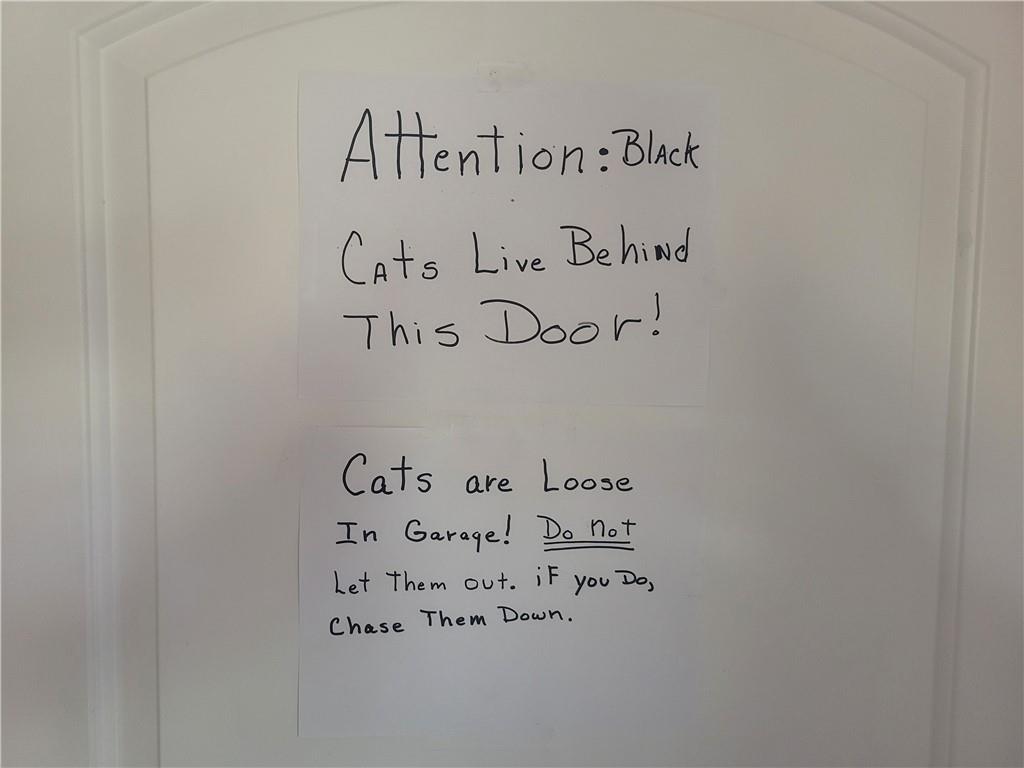 Attention: Black
Cats Live Behind
This Door!
Cats are Loose
In Garage! Do Not
Let Them out. iF you Do,
Chase Them Down.